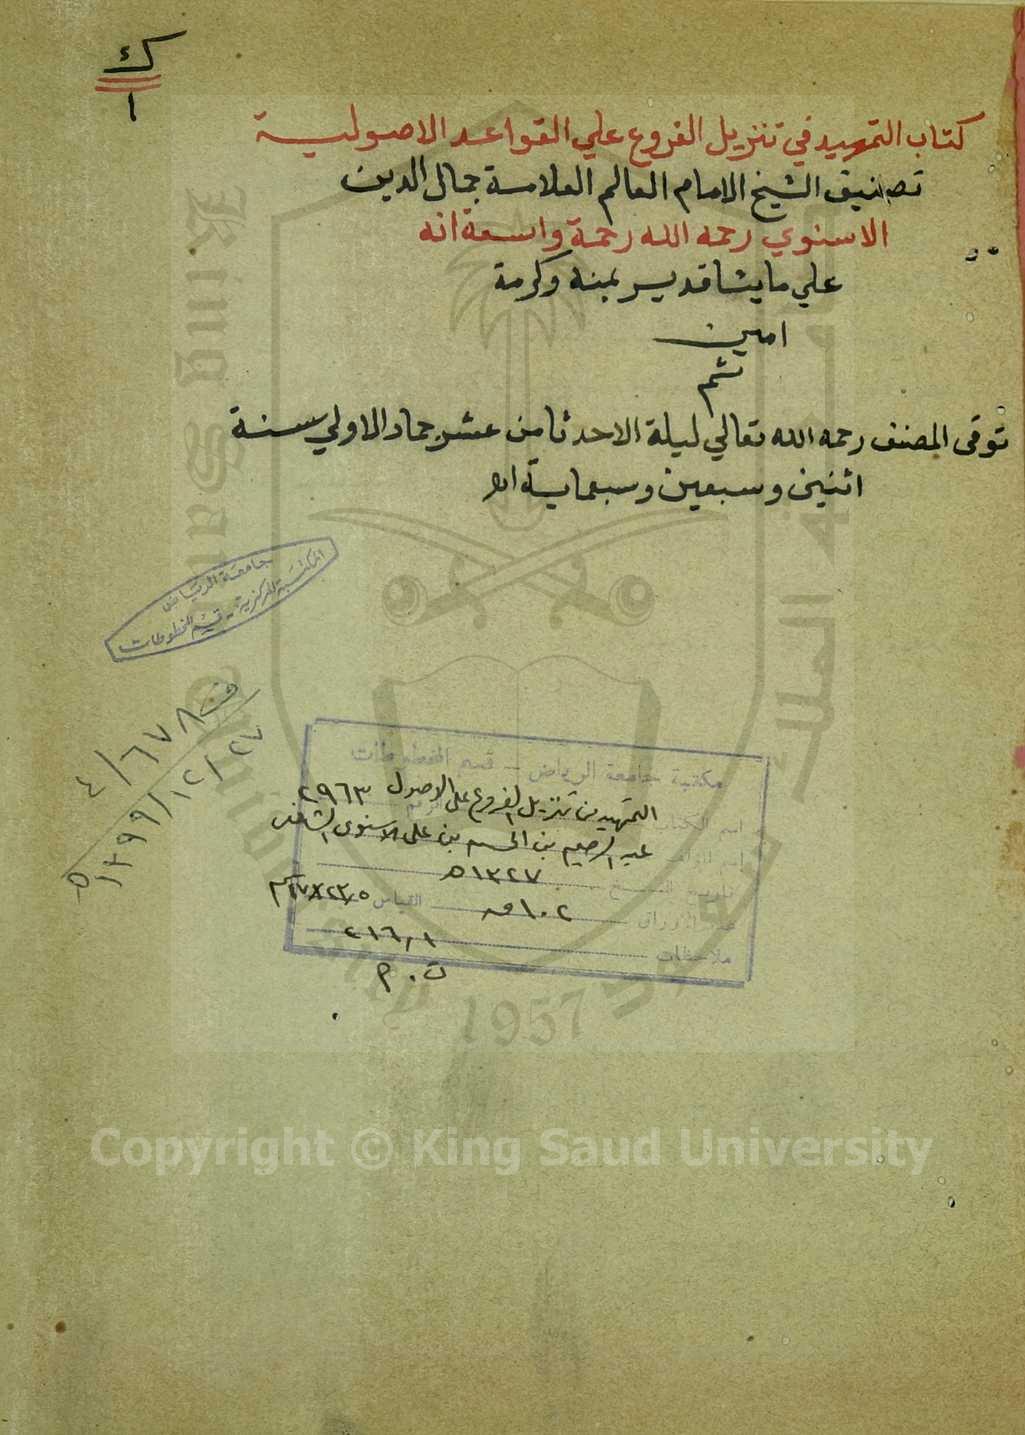 ك
١
كتاب التمهيد في تنزيل الفروع علي القواعد الاصولية
تصنيف الشيخ الامام العالم العلامة جمال الدين
الاسنوي رحمه الله رحمة واسعة انه
علي مايشا قدير بمنه وكرمة
امين
تم
توفى المصنف رحمه الله تعالي ليلة الاحد ثامن عشر جماد الاولي سنة
اثنين وسبعين وسبعماية اه
جامعة الرياض
المكتبة المركزية - قسم المخطوطات
ف ٤/٦٧٨
١٣٩٩/١٢/٢٧ ه
مكتبة جامعة الرياض - قسم المخطوطات
التمهيد من تنزيل الفروع على الاصول ٢٩٦٣
عبد الرحيم بن الحسن بن على الاسنوى الشافعى
تاريخ النسخ ١٣٢٧ه
عدد الاوراق ١٠٢ القياس ١٧x٢٣٫٥ سم
ملاحظات ٢١٦٫١
ت . م
King Saud University
1957
Copyright © King Saud University